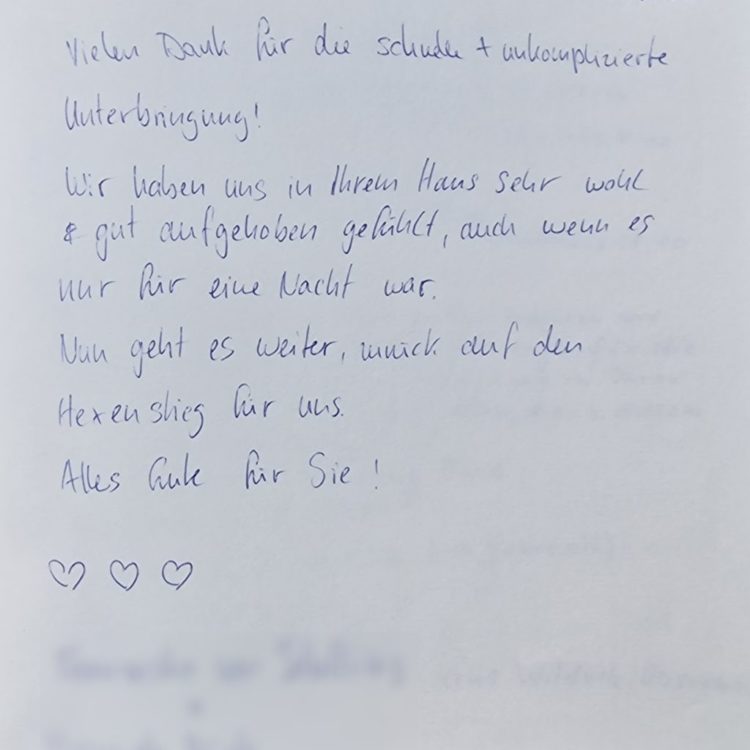 Vielen Dank für die schnelle + unkomplizierte
Unterbringung!
Wir haben uns in Ihrem Haus sehr wohl
& gut aufgehoben gefühlt, auch wenn es
nur für eine Nacht war.
Nun geht es weiter, zurück auf den
Hexenstieg für uns.
Alles Gute für Sie!
♡ ♡ ♡